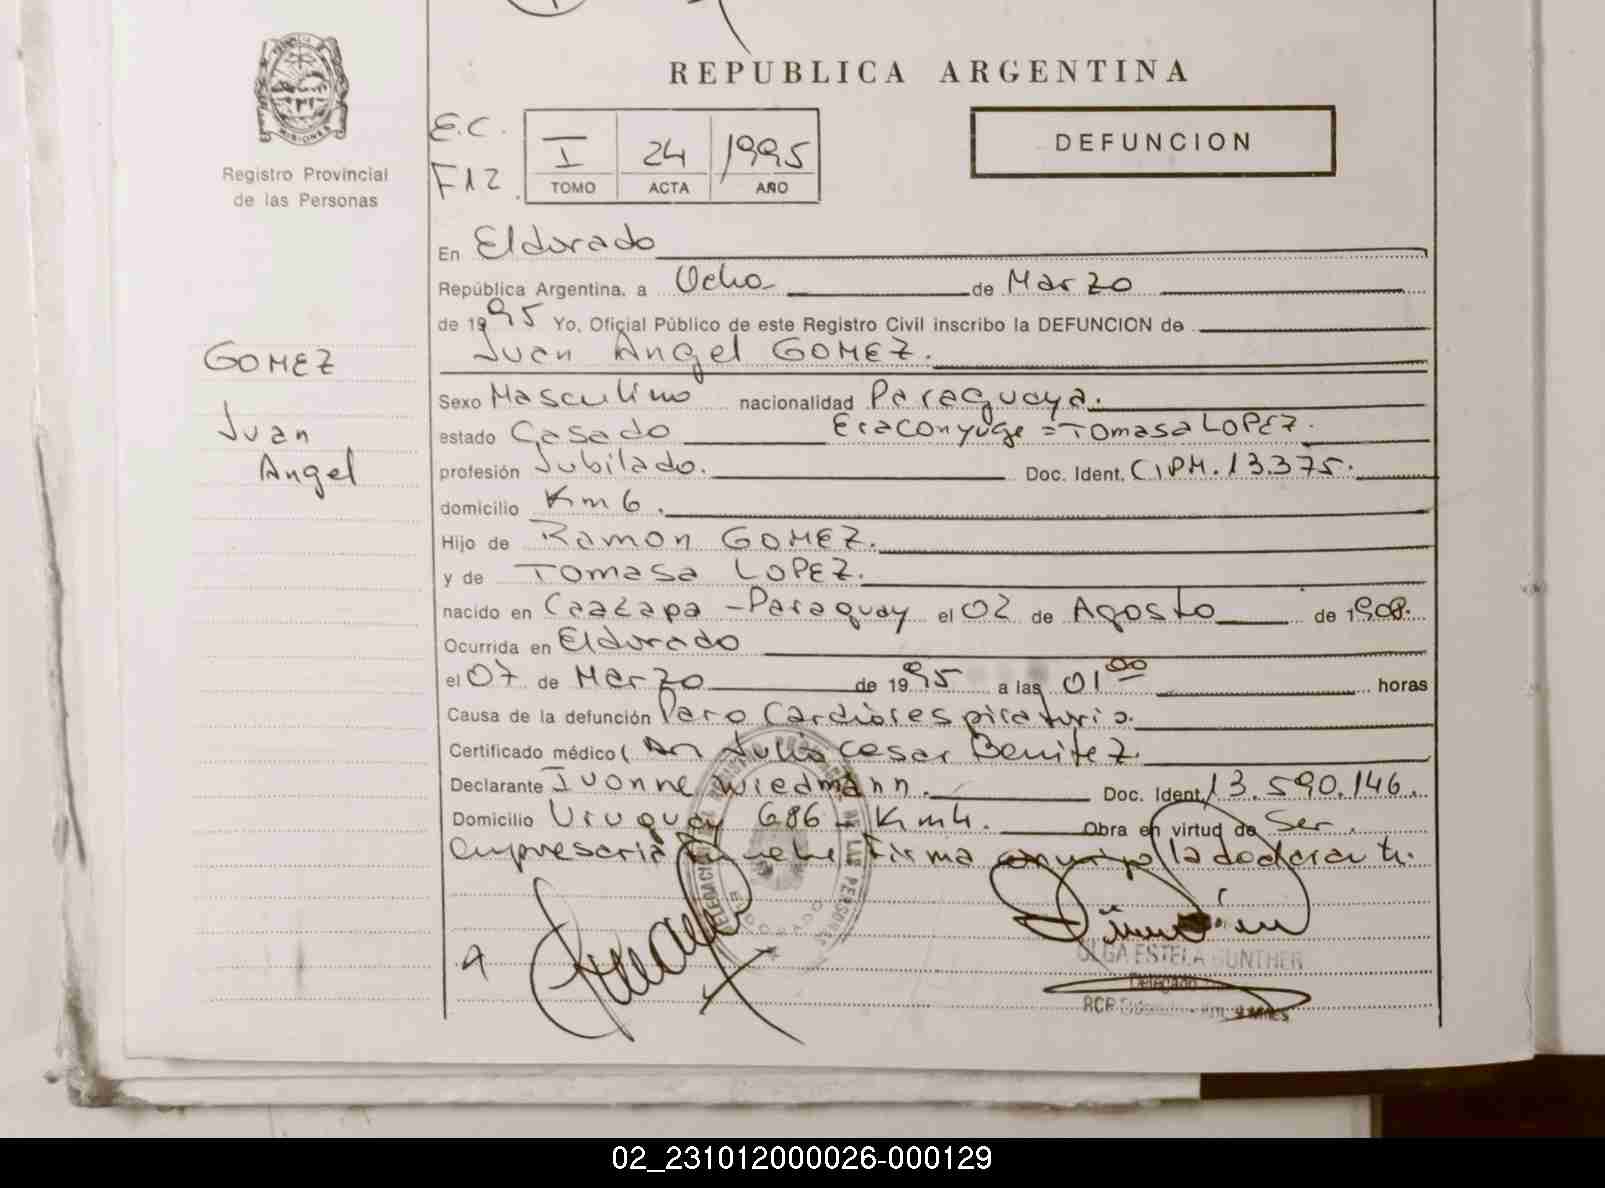 REPUBLICA ARGENTINA
PROVINCIA DE MISIONES
Registro Provincial
de las Personas
E.C.
F12.
I 24 1995
TOMO ACTA AÑO
DEFUNCION
GOMEZ
Juan
Angel
En Eldorado
República Argentina, a Ocho de Marzo
de 1995 Yo, Oficial Público de este Registro Civil inscribo la DEFUNCION de
Juan Angel GOMEZ.
Sexo Masculino nacionalidad Paraguaya.
estado Casado Era conyuge = Tomasa LOPEZ.
profesión Jubilado. Doc. Ident. CIPM. 13.375.
domicilio Km 6.
Hijo de Ramon GOMEZ.
y de TOMASA LOPEZ.
nacido en Caazapa - Paraguay el 02 de Agosto de 1908.
Ocurrida en Eldorado
el 07 de Marzo de 1995 a las 01 00 horas
Causa de la defunción Paro Cardiorespiratorio.
Certificado médico ( Julio cesar Benitez.
Declarante Ivonne Wiedmann. Doc. Ident. 13.590.146.
Domicilio Uruguay 686 - Km 4. Obra en virtud de Ser
empresaria Firma la declarante.
OLGA ESTELA GUNTHER
Delegado
RCP
02_231012000026-000129